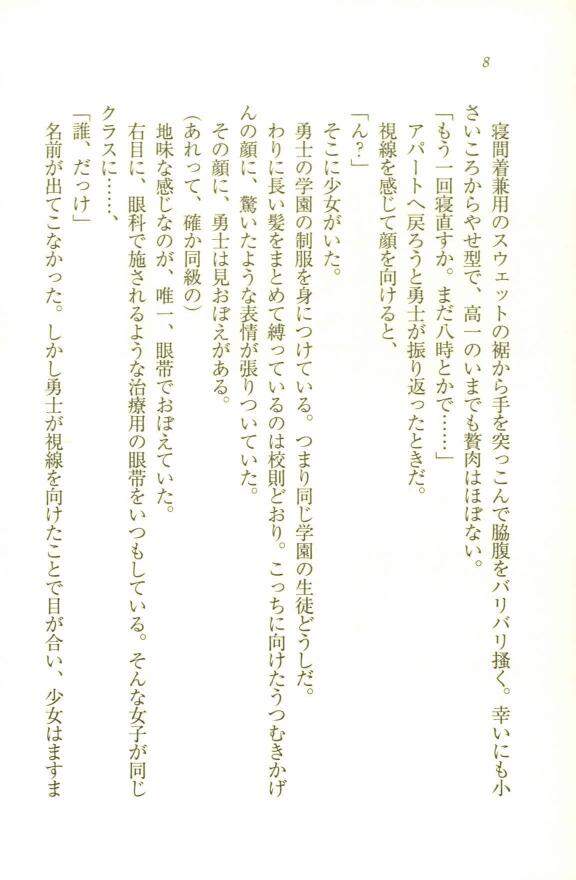 8
寝間着兼用のスウェットの裾から手を突っこんで脇腹をバリバリ掻く。幸いにも小
さいころからやせ型で、高一のいまでも贅肉はほぼない。
「もう一回寝直すか。まだ八時とかで……」
アパートへ戻ろうと勇士が振り返ったときだ。
視線を感じて顔を向けると、
「ん？」
そこに少女がいた。
勇士の学園の制服を身につけている。つまり同じ学園の生徒どうしだ。
わりに長い髪をまとめて縛っているのは校則どおり。こっちに向けたうつむきかげ
んの顔に、驚いたような表情が張りついていた。
その顔に、勇士は見おぼえがある。
（あれって、確か同級の）
地味な感じなのが、唯一、眼帯でおぼえていた。
右目に、眼科で施されるような治療用の眼帯をいつもしている。そんな女子が同じ
クラスに……、
「誰、だっけ」
名前が出てこなかった。しかし勇士が視線を向けたことで目が合い、少女はますま